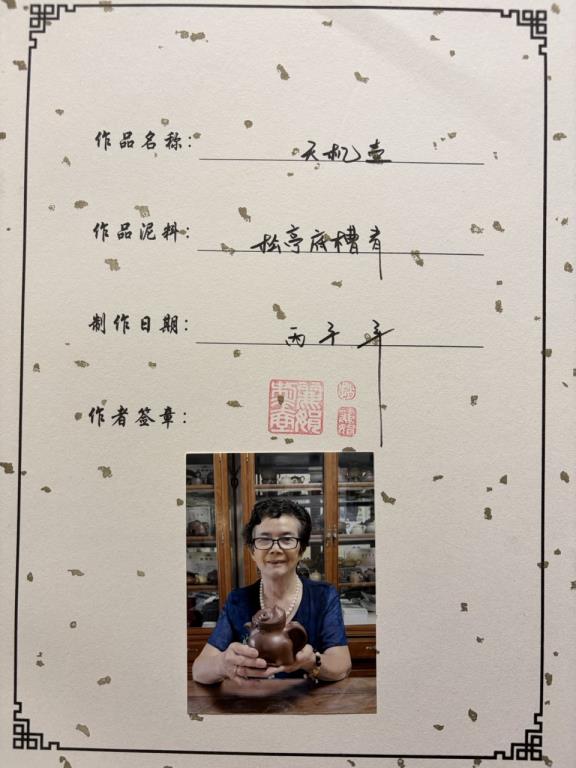 作品名称: 天机壶
作品泥料: 松亭底槽青
制作日期: 丙子年
作者签章: